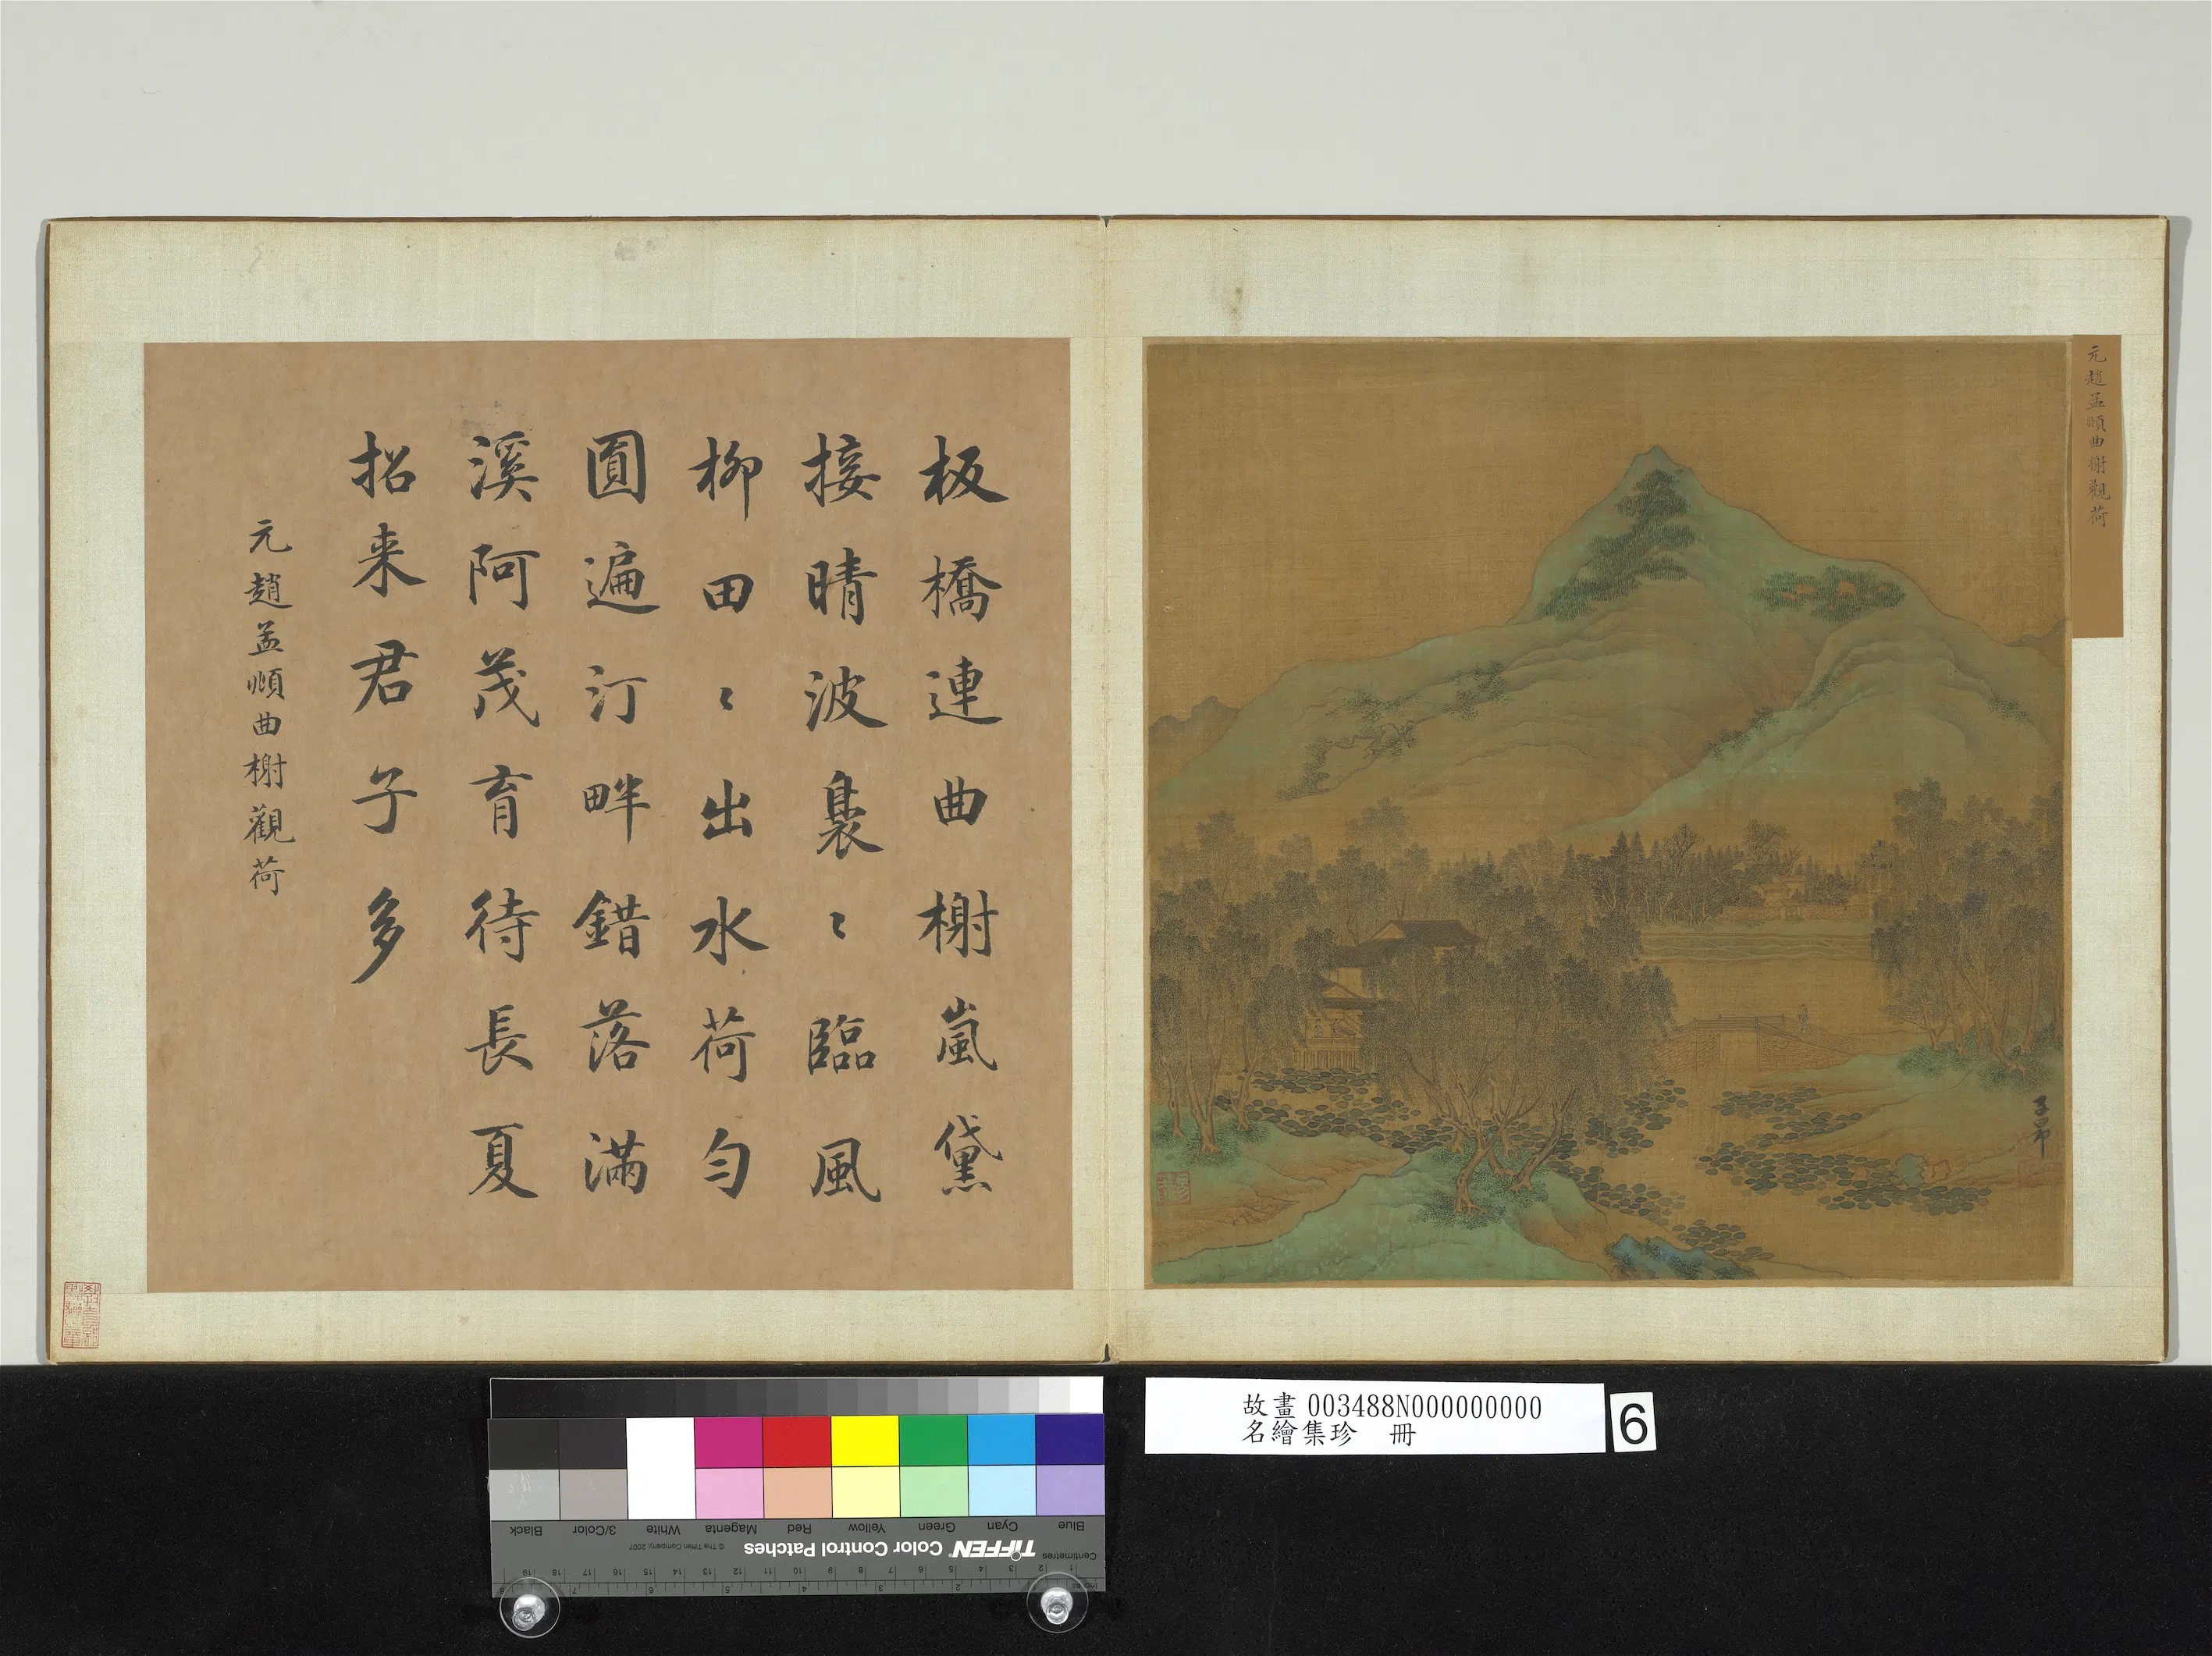 元趙孟頫曲榭觀荷
子昂
板橋連曲榭嵐黛
接晴波裊〻臨風
柳田〻出水荷勻
圓遍汀畔錯落滿
溪阿茂育待長夏
招来君子多
元趙孟頫曲榭觀荷
故畫 003488N000000000
名繪集珍　冊
6
Inches 1 2 3 4 5 6 7 8
Centimetres 1 2 3 4 5 6 7 8 9 10 11 12 13 14 15 16 17 18 19
TIFFEN Color Control Patches © The Tiffen Company, 2007
Blue Cyan Green Yellow Red Magenta White 3/Color Black